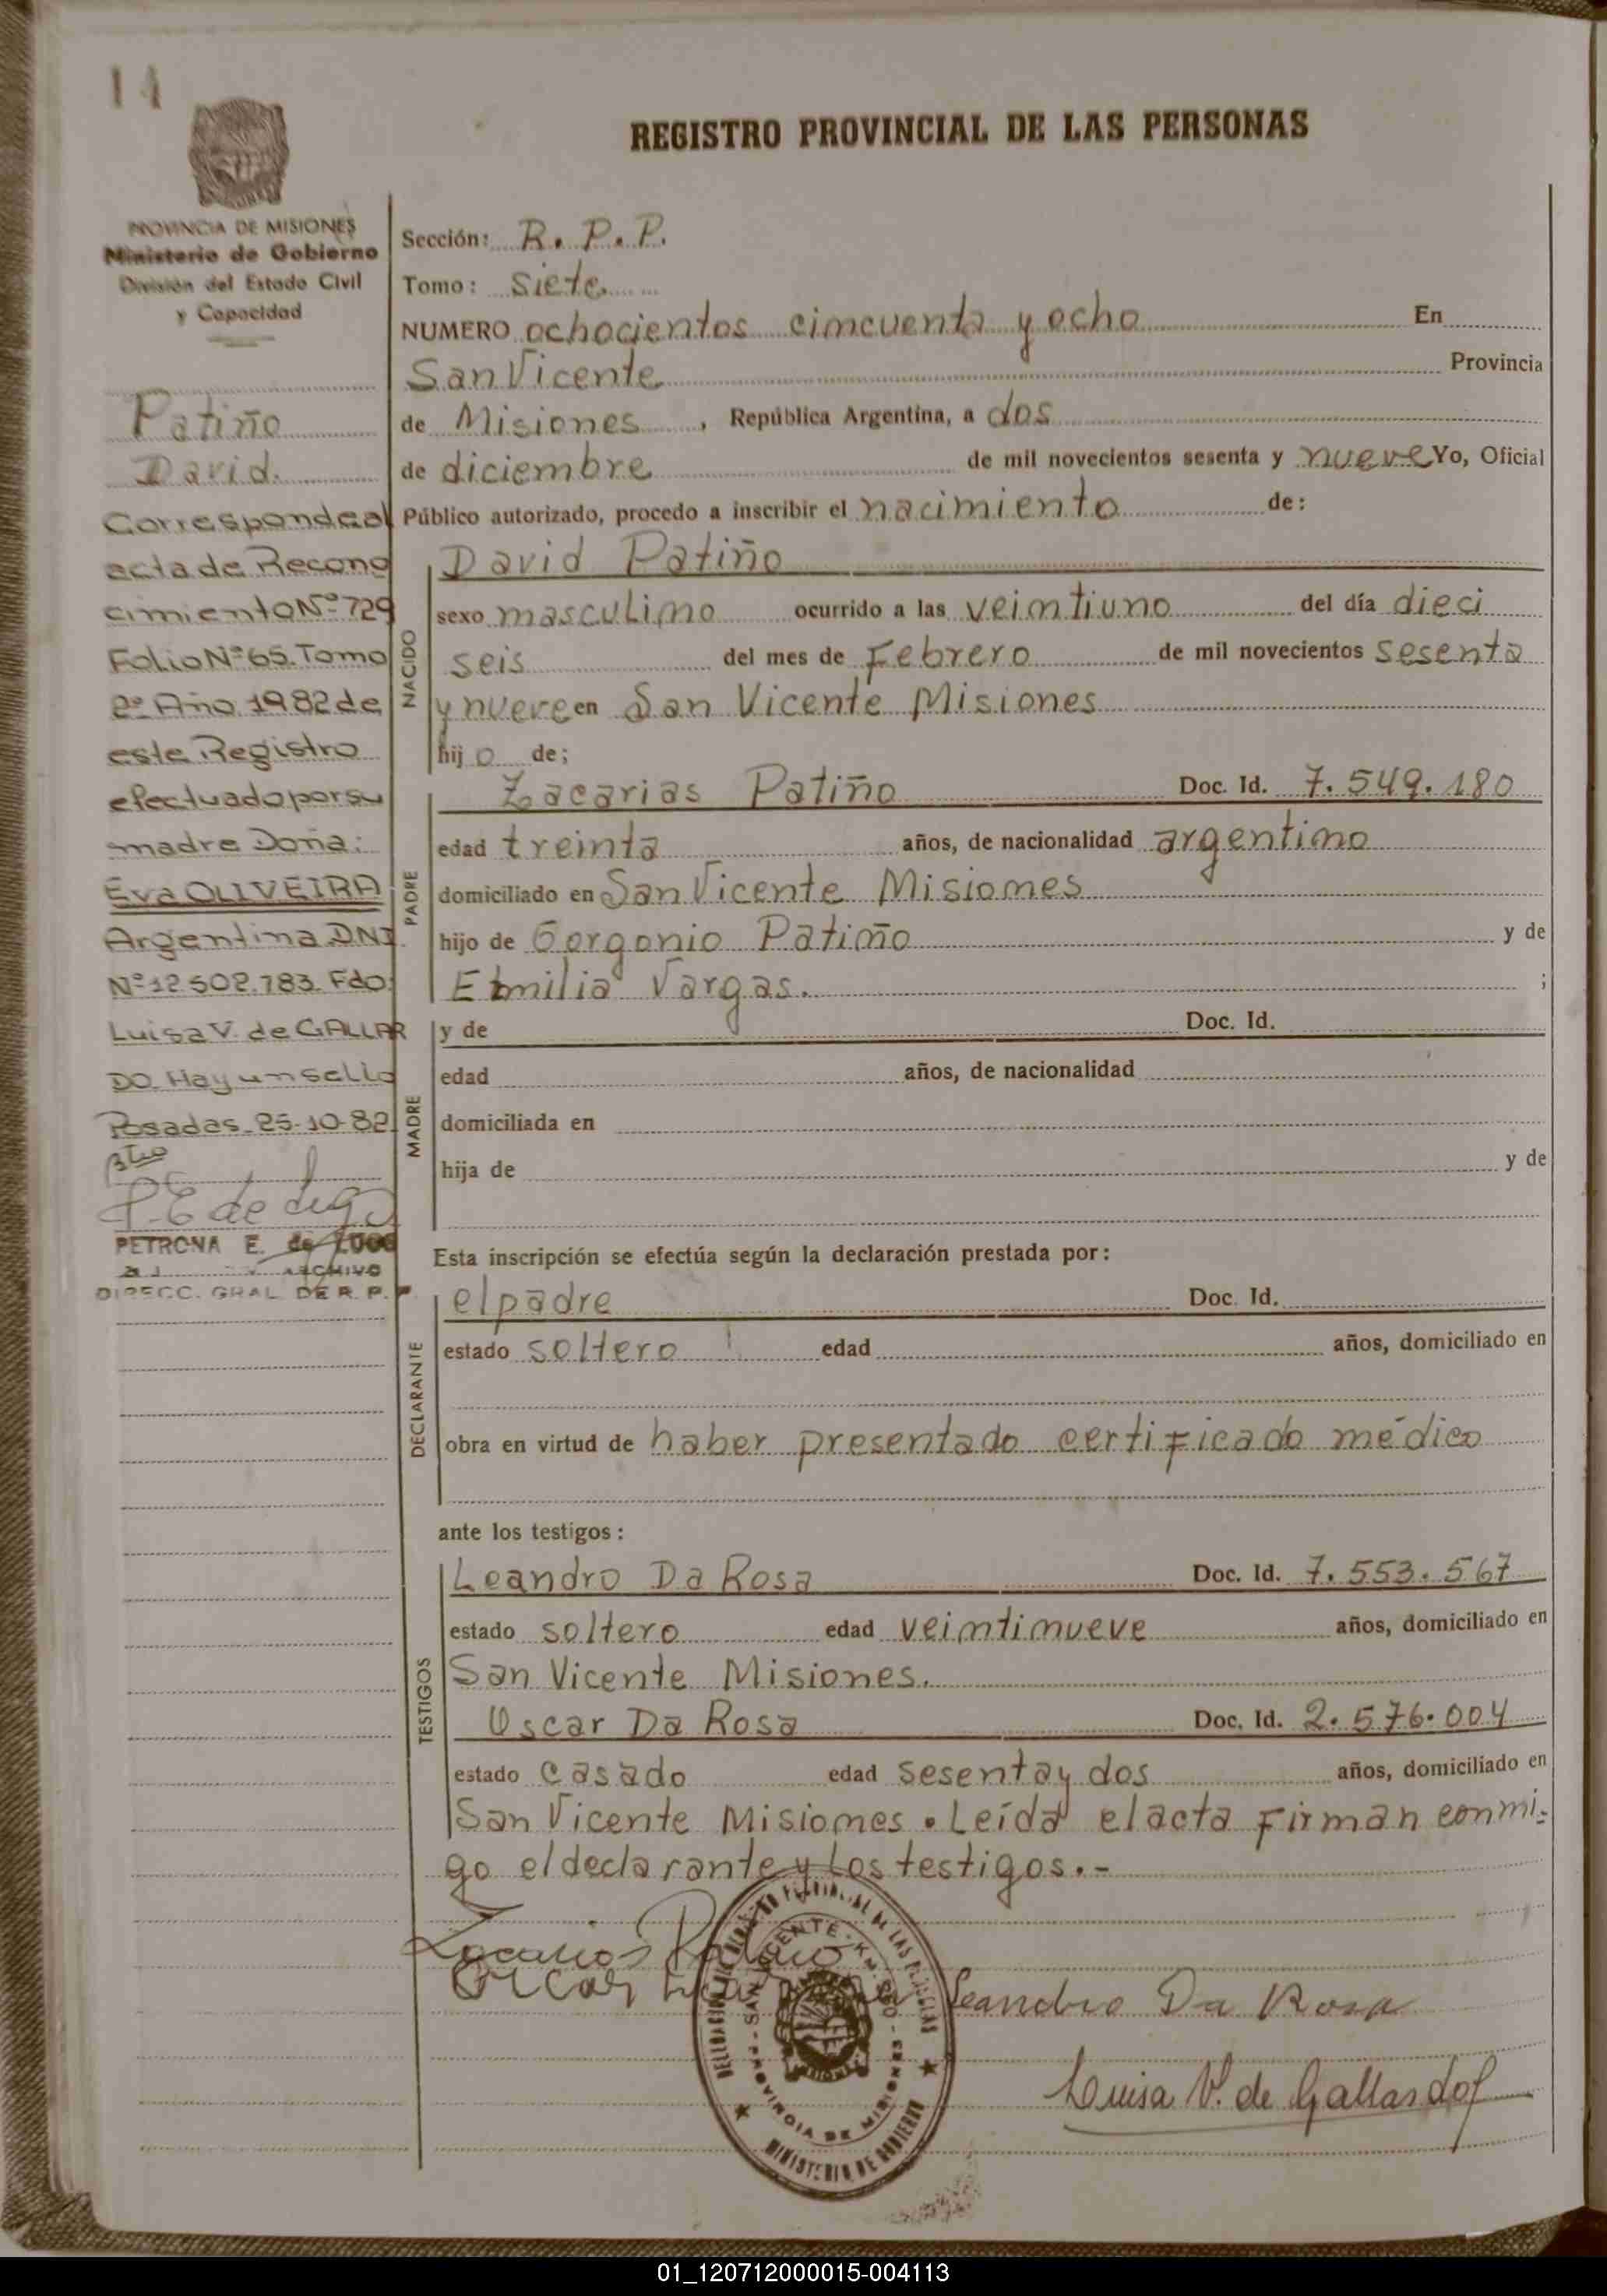 14
REGISTRO PROVINCIAL DE LAS PERSONAS
PROVINCIA DE MISIONES
Ministerio de Gobierno
División del Estado Civil
y Capacidad
Patiño
David.
Corresponde al
acta de Recono
cimiento Nº 729
Folio Nº 65. Tomo
2º Año 1982 de
este Registro
efectuado por su
madre Doña:
Eva OLIVEIRA
Argentina DNI.
Nº 12.502.783. Fdo:
Luisa V. de GALLAR
DO. Hay un sello
Posadas 25-10-82
PETRONA E. de LUGO
ARCHIVO
DIRECC. GRAL. DE R. P. P.
Sección: R. P. P.
Tomo: Siete
NUMERO ochocientos cincuenta y ocho En
San Vicente Provincia
de Misiones, República Argentina, a dos
de diciembre de mil novecientos sesenta y nueve Yo, Oficial
Público autorizado, procedo a inscribir el nacimiento de:
NACIDO
David Patiño
sexo masculino ocurrido a las veintiuno del día dieci
seis del mes de Febrero de mil novecientos sesenta
y nueve en San Vicente Misiones
hijo de;
PADRE
Zacarias Patiño Doc. Id. 7.549.180
edad treinta años, de nacionalidad argentino
domiciliado en San Vicente Misiones
hijo de Gorgonio Patiño y de
Emilia Vargas. ;
MADRE
y de Doc. Id.
edad años, de nacionalidad
domiciliada en
hija de y de
Esta inscripción se efectúa según la declaración prestada por:
DECLARANTE
el padre Doc. Id.
estado soltero edad años, domiciliado en
obra en virtud de haber presentado certificado médico
ante los testigos:
TESTIGOS
Leandro Da Rosa Doc. Id. 7.553.567
estado soltero edad veintinueve años, domiciliado en
San Vicente Misiones.
Oscar Da Rosa Doc. Id. 2.576.004
estado casado edad sesenta y dos años, domiciliado en
San Vicente Misiones. Leída el acta firman conmi-
go el declarante y los testigos.-
Zacarias Patiño
Oscar
Leandro Da Rosa
Luisa V. de Gallardo
SAN VICENTE - KM.
PROVINCIA DE MISIONES
MINISTERIO DE GOBIERNO
01_120712000015-004113